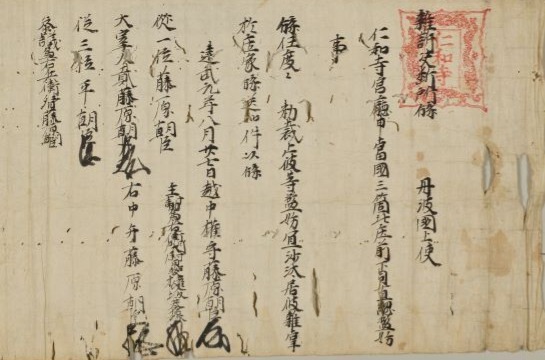 仁和寺
雜訴決断所牒　丹波國上使
仁和寺宮廳申當國三箇北庄前下司濫妨
事
牒任度々　勅裁止彼等濫妨宜沙汰居彼雜掌
於庄家牒送如件以牒
建武元年八月廿七日越中權守藤原朝臣
從一位藤原朝臣
大宰權帥藤原朝臣　右中弁藤原朝臣
從三位平朝臣
參議兼右兵衛督藤原朝臣